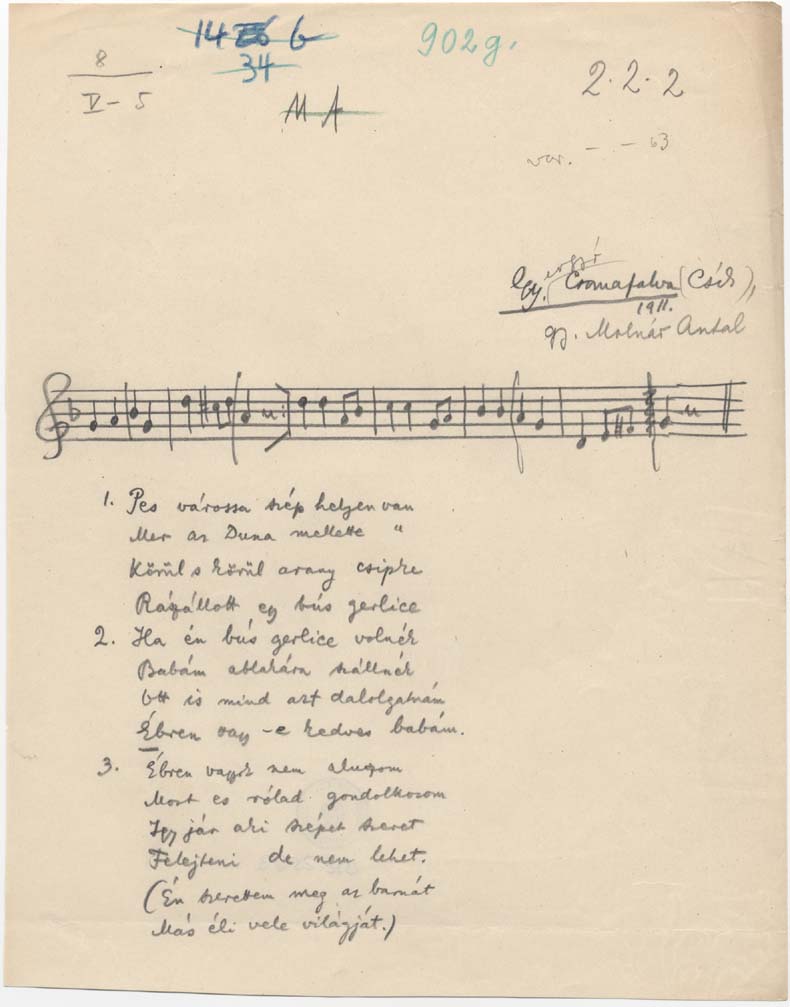 14 b
902 g.
8
V-5
34
2.2.2
MA
var. - - 63
Gy. (Csomafalva (Csík),
1911.
gj. Molnár Antal
1. Pes várossa szép helyen van
Mer az Duna mellette "
Körül s körül arany csipke
Rászállott egy bús gerlice
2. Ha én bús gerlice volnék
Babám ablakára szállnék
Ott is mind azt dalolgatnám
Ébren vagy-e kedves babám.
3. Ébren vagyok nem aluszom
Most es rólad gondolkozom
Igy jár aki szépet szeret
Felejteni de nem lehet.
(Én szerettem meg az barnát
Más éli vele világját.)